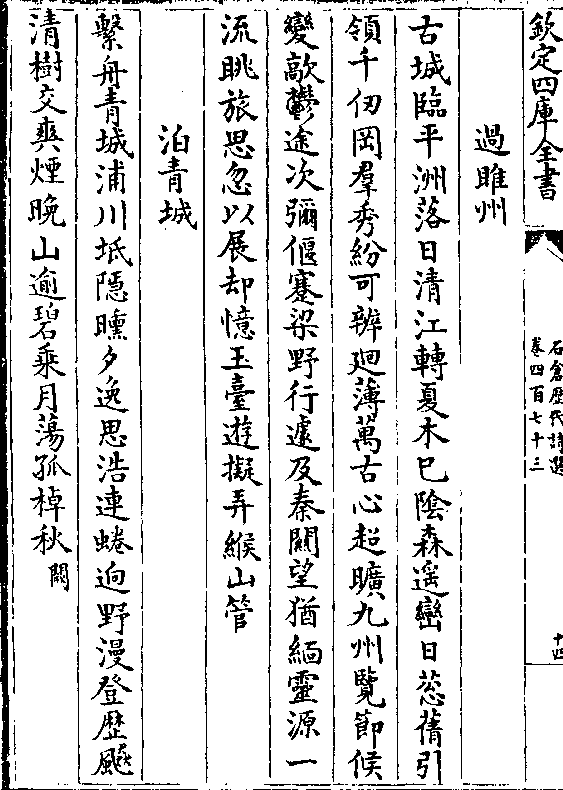 欽定四庫全書
石倉歷代詩選
卷四百七十三
十四
過睢州
古城臨平洲落日清江轉夏木已隂森遥巒日蔥蒨引
領千仞岡羣秀紛可辨廻薄萬古心超曠九州覽節候
變歊鬱途次彌偃蹇梁野行遽及秦關望猶緬靈源一
流眺旅思忽以展却憶王臺遊擬弄緱山管
泊青城
繫舟青城浦川坻隱曛夕逸思浩連蜷逈野漫登歴颸
清樹交爽煙晚山逾碧乘月蕩孤棹秋闕